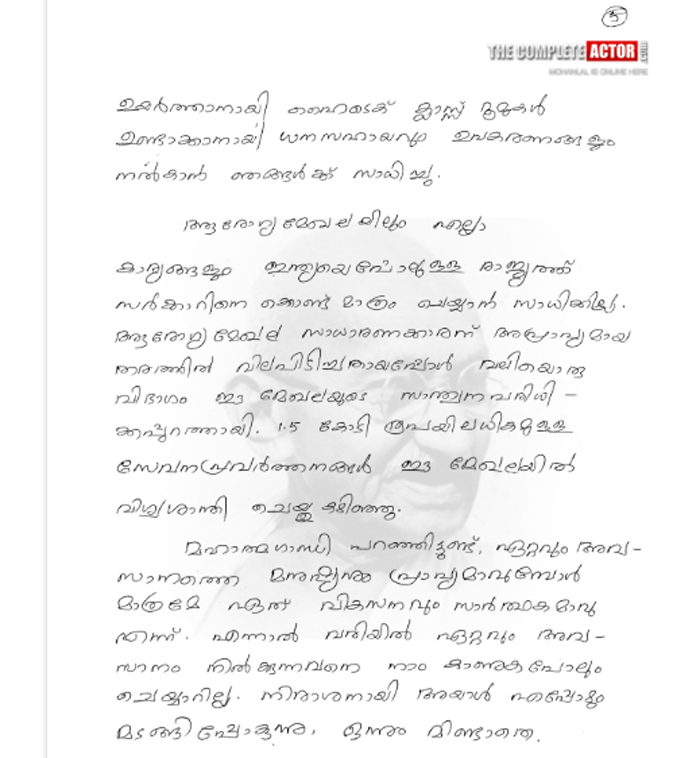 5
THE COMPLETE ACTOR .COM
MOHANLAL IS ONLINE HERE
ഉയർത്താനായി ഹൈടെക് ക്ലാസ്സ് റൂമുകൾ
ഉണ്ടാക്കാനായി ധനസഹായവും ഉപകരണങ്ങളും
നൽകാൻ ഞങ്ങൾക്ക് സാധിച്ചു.
ആരോഗ്യമേഖലയിലും എല്ലാ
കാര്യങ്ങളും ഇന്ത്യയെപ്പോലുള്ള രാജ്യത്ത്
സർക്കാറിനെ ക്കൊണ്ട് മാത്രം ചെയ്യാൻ സാധിക്കില്ല.
ആരോഗ്യമേഖല സാധാരണക്കാരന് അപ്രാപ്യമായ
തരത്തിൽ വിലപിടിച്ചതായപ്പോൾ വലിയൊരു
വിഭാഗം ഈ മേഖലയുടെ സാന്ത്വനപരിധി -
ക്കപ്പുറത്തായി. 1.5 കോടി രൂപയിലധികമുള്ള
സേവനപ്രവർത്തനങ്ങൾ ഈ മേഖലയിൽ
വിശ്വശാന്തി ചെയ്തു കഴിഞ്ഞു.
മഹാത്മഗാന്ധി പറഞ്ഞിട്ടുണ്ട്, ഏറ്റവും അവ-
സാനത്തെ മനുഷ്യനും പ്രാപ്യമാവുമ്പോൾ
മാത്രമേ ഏത് വികസനവും സാർത്ഥകമാവൂ
എന്ന്. എന്നാൽ വരിയിൽ ഏറ്റവും അവ-
സാനം നിൽക്കുന്നവനെ നാം കാണുകപോലും
ചെയ്യാറില്ല. നിരാശനായി അയാൾ എപ്പോഴും
മടങ്ങിപ്പോകുന്നു, ഒന്നും മിണ്ടാതെ.